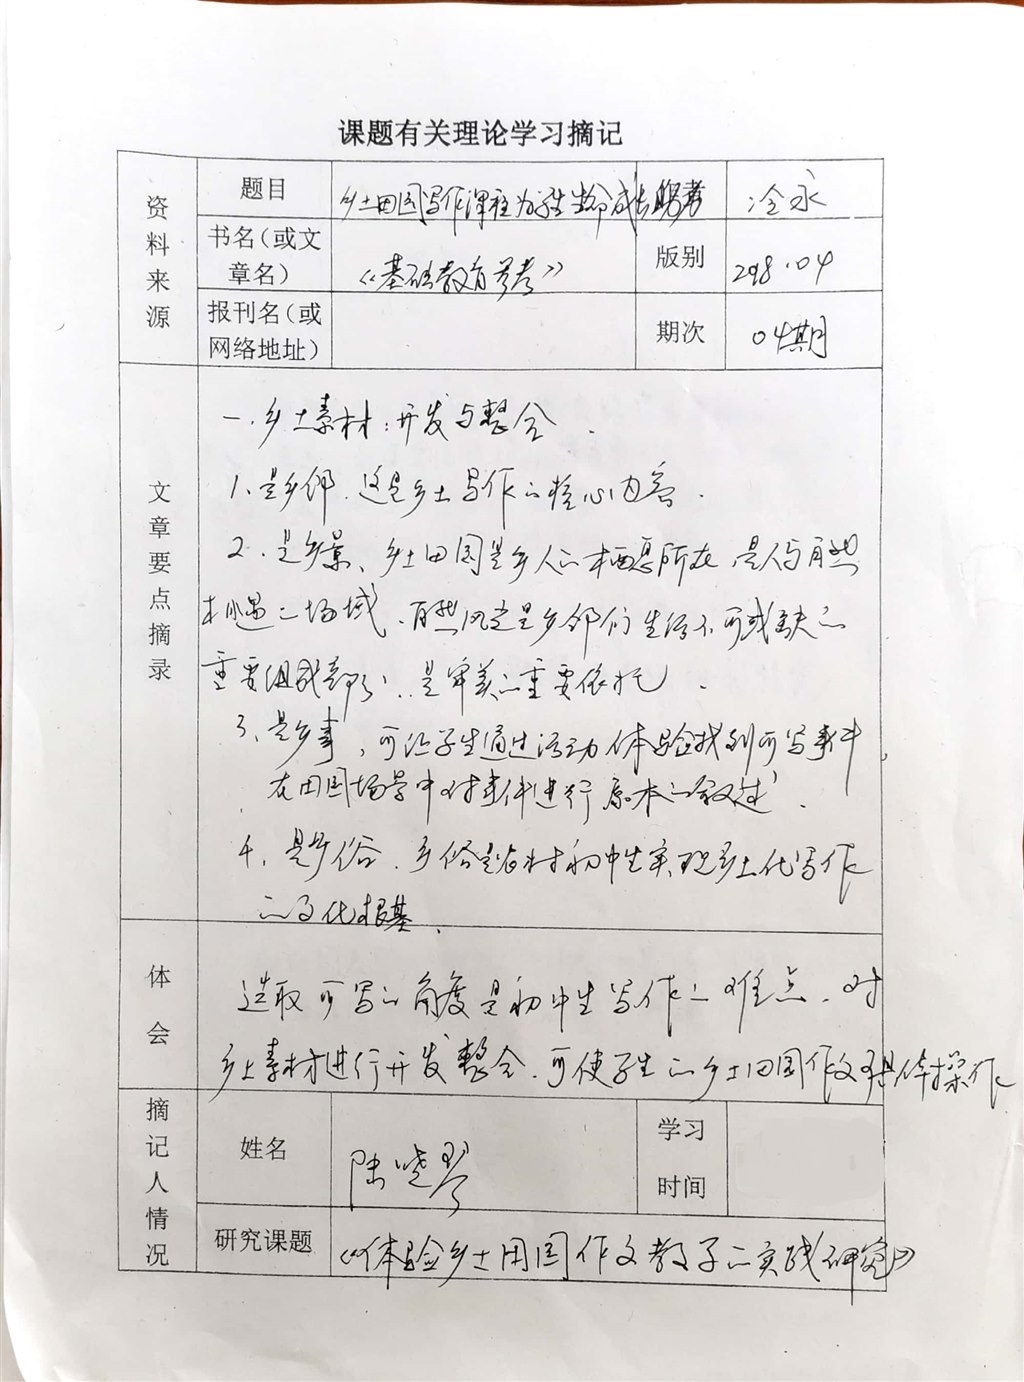 课题有关理论学习摘记
资料来源
题目
乡土田园写作课程为学生生命成长
冷永
书名(或文章名)
《基础教育参考》
版别
298.04
报刊名(或网络地址)
期次
04期
文章要点摘录
一.乡土素材:开发与整合.
1、是乡邻.这是乡土写作的核心内容.
2、是乡景、乡土田园是乡人的栖息所在,是人与自然
相遇的场域、自然风光是乡邻们生活不可或缺的
重要组成部分,是审美的重要依托.
3、是乡事,可让学生通过活动体验找到可写事件,
在田园场景中对事件进行原本的叙述.
4、是乡俗.乡俗是农村初中生实现乡土化写作
的文化根基.
体会
选取可写的角度是初中生写作的难点.对
乡土素材进行开发整合.可使学生的乡土田园作文具体操作
摘记人情况
姓名
陆晓琴
学习时间
研究课题
《体验乡土田园作文教学的实践研究》